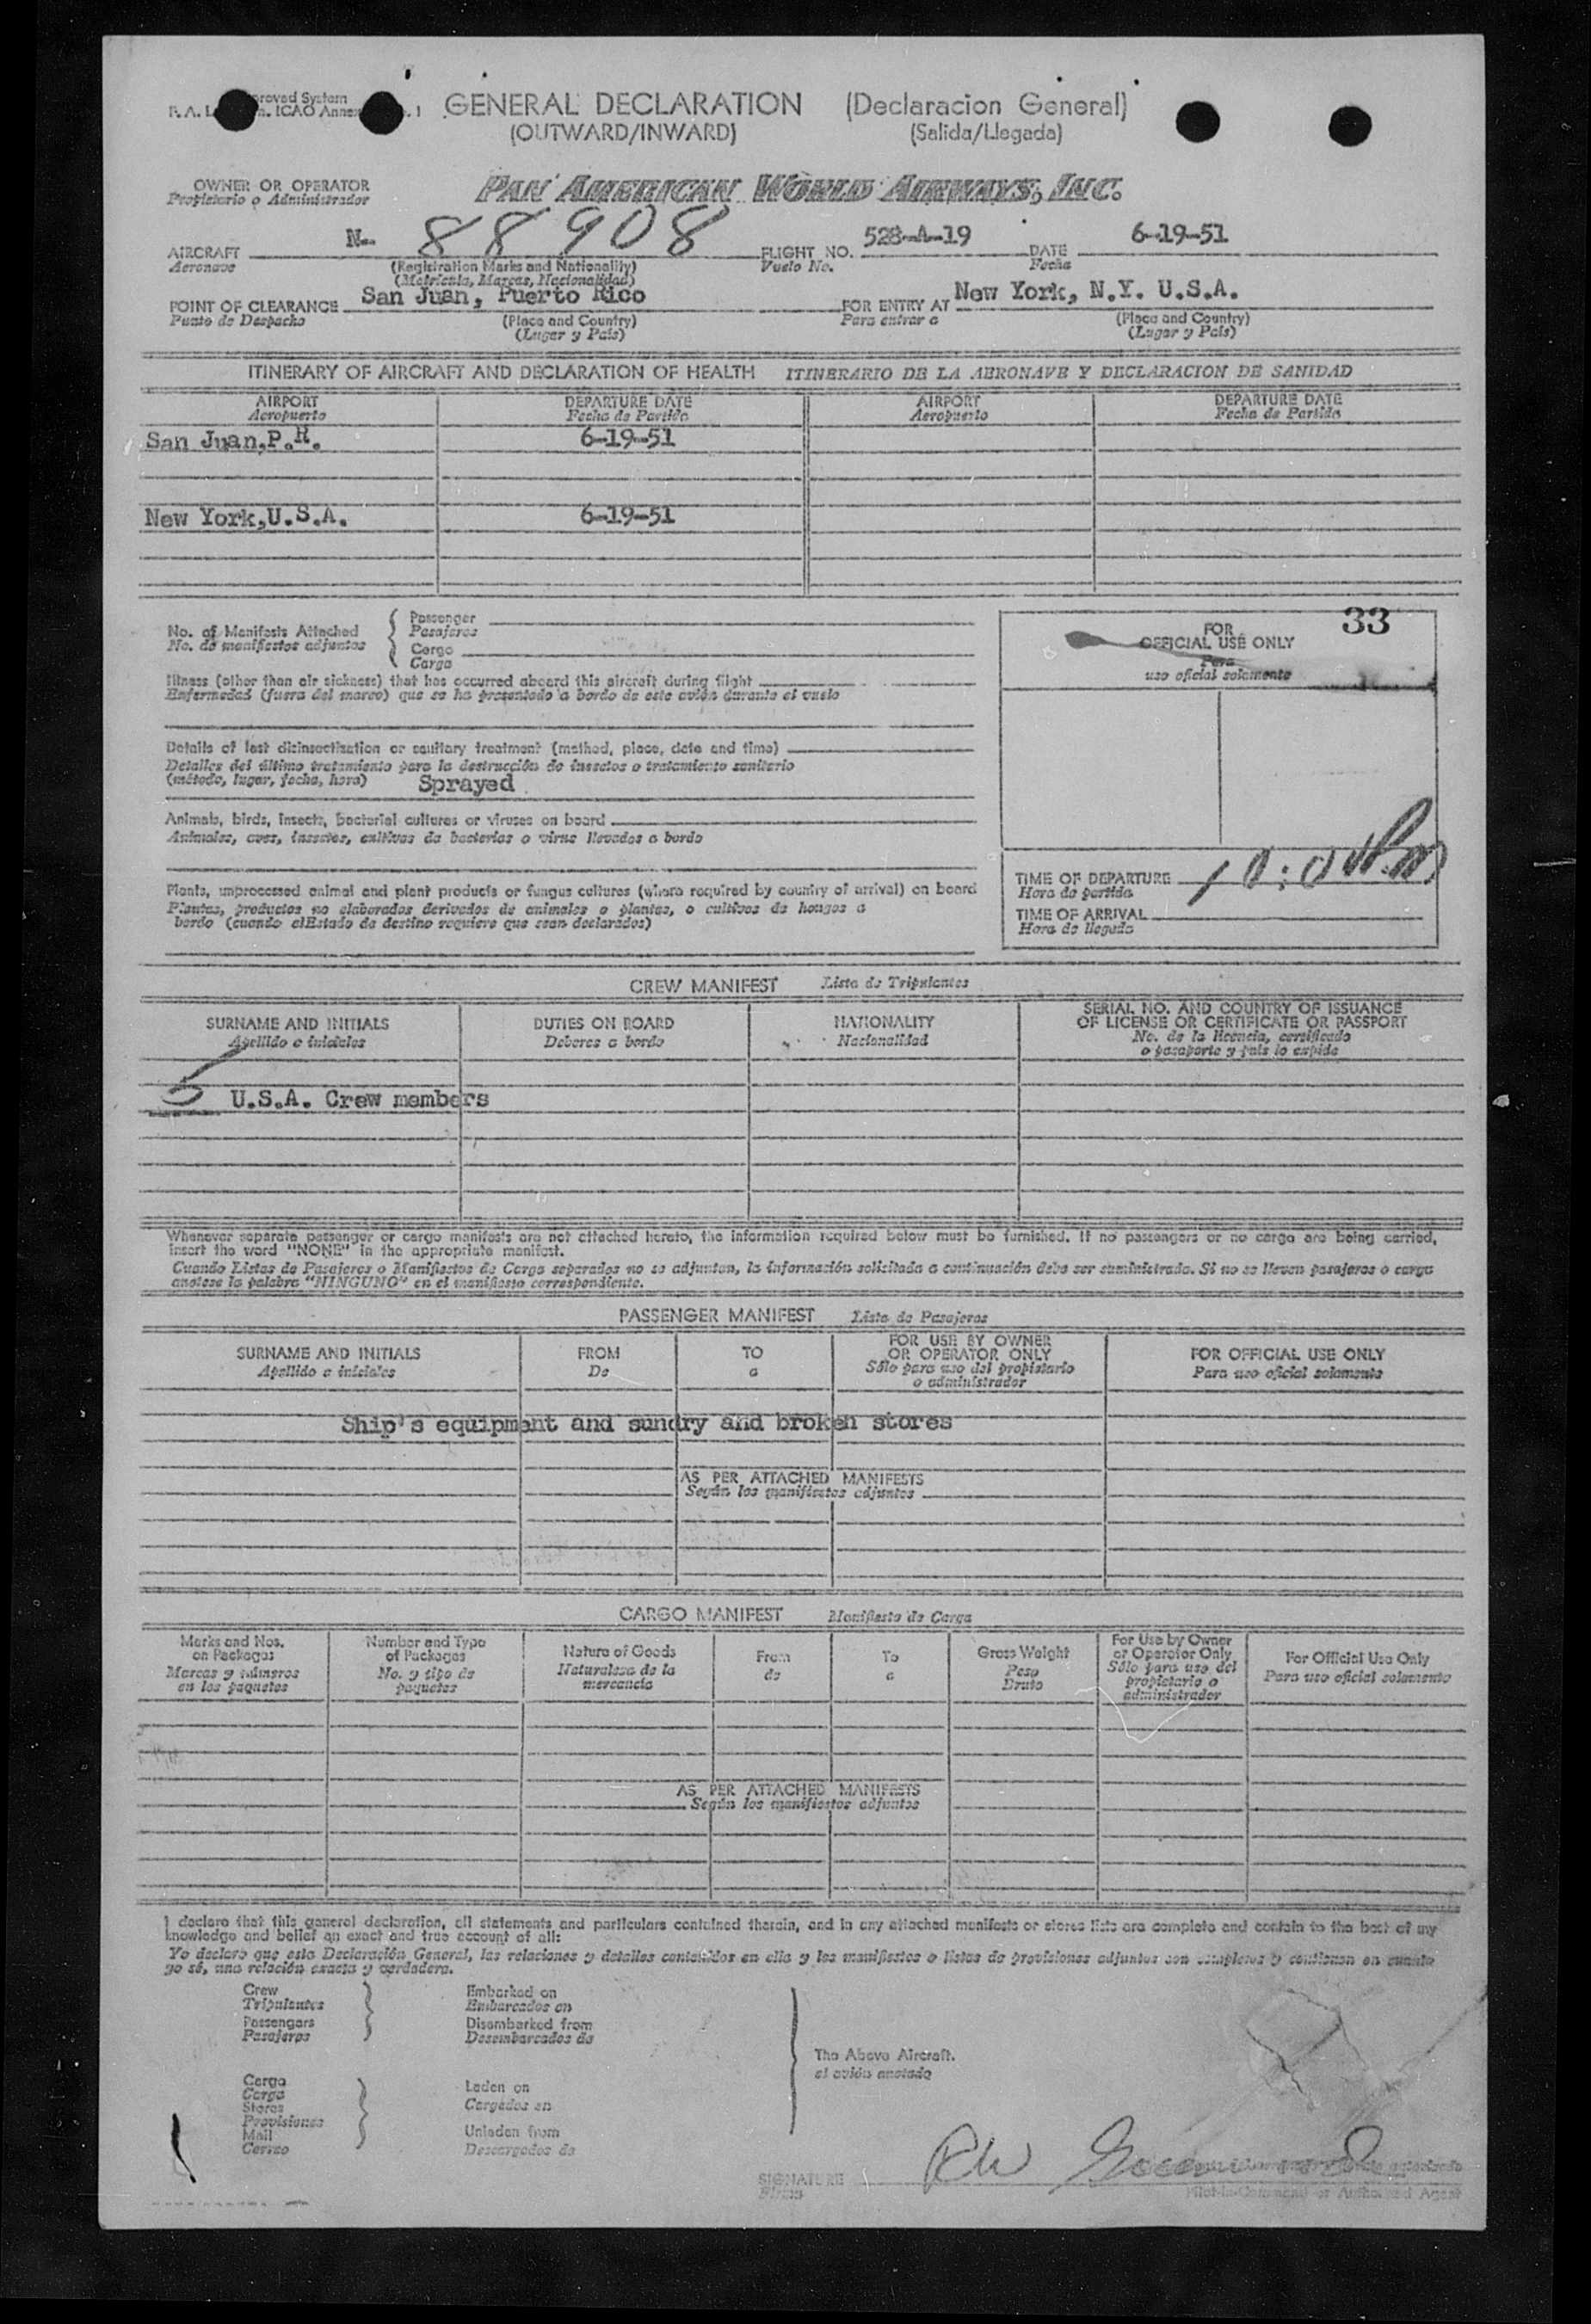 proved System
GENERAL DECLARATION (Declaracion General)
(OUTWARD/INWARD) (Salida/Llegada)
OWNER OR OPERATOR PAN AMERICAN WORLD AIRWAYS, INC.
Propietario o Administrador
AIRCRAFT N- 88908 FLIGHT NO. 528-A-19 DATE 6-19-51
Aeronave (Registration Marks and Nationality) Vuelo No. Fecha
(Matricula, Marcas, Nacionalidad)
POINT OF CLEARANCE San Juan, Puerto Rico FOR ENTRY AT New York, N.Y. U.S.A.
Punto de Despacho (Place and Country) Para entrar a (Place and Country)
(Lugar y País) (Lugar y País)
ITINERARY OF AIRCRAFT AND DECLARATION OF HEALTH ITINERARIO DE LA AERONAVE Y DECLARACION DE SANIDAD
AIRPORT DEPARTURE DATE AIRPORT DEPARTURE DATE
Aeropuerto Fecha de Partida Aeropuerto Fecha de Partida
San Juan,P.R. 6-19-51
New York,U.S.A. 6-19-51
No. of Manifests Attached { Passenger
No. de manifiestos adjuntos Pasajeros
Cargo
Carga
33
FOR
OFFICIAL USE ONLY
Para
uso oficial solamente
Illness (other than air sickness) that has occurred aboard this aircraft during flight
Enfermedad (fuera del mareo) que se ha presentado a bordo de este avión durante el vuelo
Details of last disinsectization or sanitary treatment (method, place, date and time)
Detalles del último tratamiento para la destrucción de insectos o tratamiento sanitario
(método, lugar, fecha, hora) Sprayed
Animals, birds, insects, bacterial cultures or viruses on board
Animales, aves, insectos, cultivos de bacterias o virus llevados a bordo
Plants, unprocessed animal and plant products or fungus cultures (where required by country of arrival) on board
Plantas, productos no elaborados derivados de animales o plantas, o cultivos de hongos a
bordo (cuando elEstado de destino requiere que sean declarados)
TIME OF DEPARTURE
Hora de partida
TIME OF ARRIVAL
Hora de llegada
CREW MANIFEST Lista de Tripulantes
SURNAME AND INITIALS DUTIES ON BOARD NATIONALITY SERIAL NO. AND COUNTRY OF ISSUANCE
OF LICENSE OR CERTIFICATE OR PASSPORT
Apellido e iniciales Deberes a bordo Nacionalidad No. de la licencia, certificado
o pasaporte y país lo expide
5 U.S.A. Crew members
Whenever separate passenger or cargo manifests are not attached hereto, the information required below must be furnished. If no passengers or no cargo are being carried,
insert the word "NONE" in the appropriate manifest.
Cuando Listas de Pasajeros o Manifiestos de Carga separados no se adjuntan, la información solicitada a continuación debe ser suministrada. Si no se llevan pasajeros o carga
anotese la palabra "NINGUNO" en el manifiesto correspondiente.
PASSENGER MANIFEST Lista de Pasajeros
SURNAME AND INITIALS FROM TO FOR USE BY OWNER
OR OPERATOR ONLY FOR OFFICIAL USE ONLY
Apellido e iniciales De a Sólo para uso del propietario
o administrador Para uso oficial solamente
Ship's equipment and sundry and broken stores
AS PER ATTACHED MANIFESTS
Según los manifiestos adjuntos
CARGO MANIFEST Manifiesto de Carga
Marks and Nos.
on Packages
Marcas y números
en los paquetes
Number and Type
of Packages
No. y tipo de
paquetes
Nature of Goods
Naturaleza de la
mercancía
From
de
To
a
Gross Weight
Peso
Bruto
For Use by Owner
or Operator Only
Sólo para uso del
propietario o
administrador
For Official Use Only
Para uso oficial solamente
AS PER ATTACHED MANIFESTS
Según los manifiestos adjuntos
I declare that this general declaration, all statements and particulars contained therein, and in any attached manifests or stores lists are complete and contain to the best of my
knowledge and belief an exact and true account of all:
Yo declaro que esta Declaración General, las relaciones y detalles contenidos en ella y los manifiestos o listas de provisiones adjuntos son completos y contienen en cuanto
yo sé, una relación exacta y verdadera.
Crew Embarked on
Tripulantes Embarcados en
Passengers Disembarked from
Pasajeros Desembarcados de
The Above Aircraft.
el avión anotado
Cargo Laden on
Carga Cargados en
Stores
Provisiones
Mail Unladen from
Correo Descargados de
SIGNATURE
Firma
Pilot-in-Command or Authorized Agent